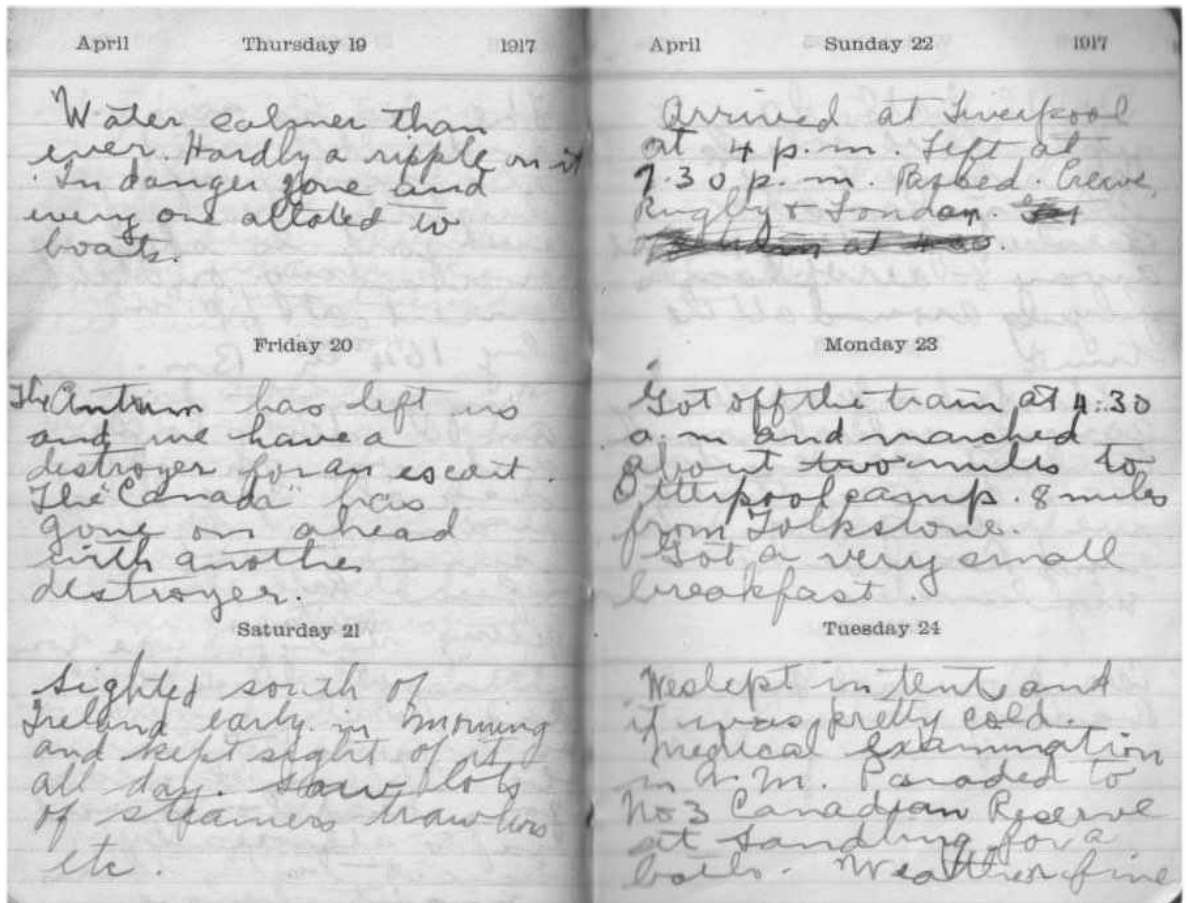 April Thursday 19 1917
Water calmer than
ever. Hardly a ripple on it
. In danger zone and
every one alloted to
boats.
Friday 20
The Antrim has left us
and we have a
destroyer for an escort.
The "Canada" has
gone on ahead
with another
destroyer.
Saturday 21
Sighted south of
Ireland early in morning
and kept sight of it
all day. Saw lots
of steamers trawlers
etc.
April Sunday 22 1917
Arrived at Liverpool
at 4 p.m. Left at
7.30 p.m. Passed Crewe,
Rugby & London.
at
Monday 23
Got off the train at 4:30
a.m and marched
about two miles to
Otterpool camp. 8 miles
from Folkstone.
Got a very small
breakfast.
Tuesday 24
We slept in tents and
it was pretty cold.
Medical examination
in A.M. Paraded to
No 3 Canadian Reserve
at Sandling for a
bath. Weather fine